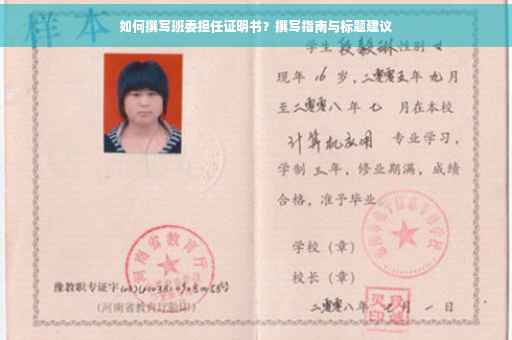 如何撰写班委担任证明书？撰写指南与标题建议
样本
学生 段毅琳 性别 女
现年 16 岁，二零零五年 九 月
至二零零八 年 七 月在本校
计算机应用 专业学习，
学制 三 年，修业期满，成绩
合格，准予毕业。
学校（章）
校长（章）
二零零八年 七 月 一 日
河南省教育厅
豫教职专证字
（河南省教育厅验印）